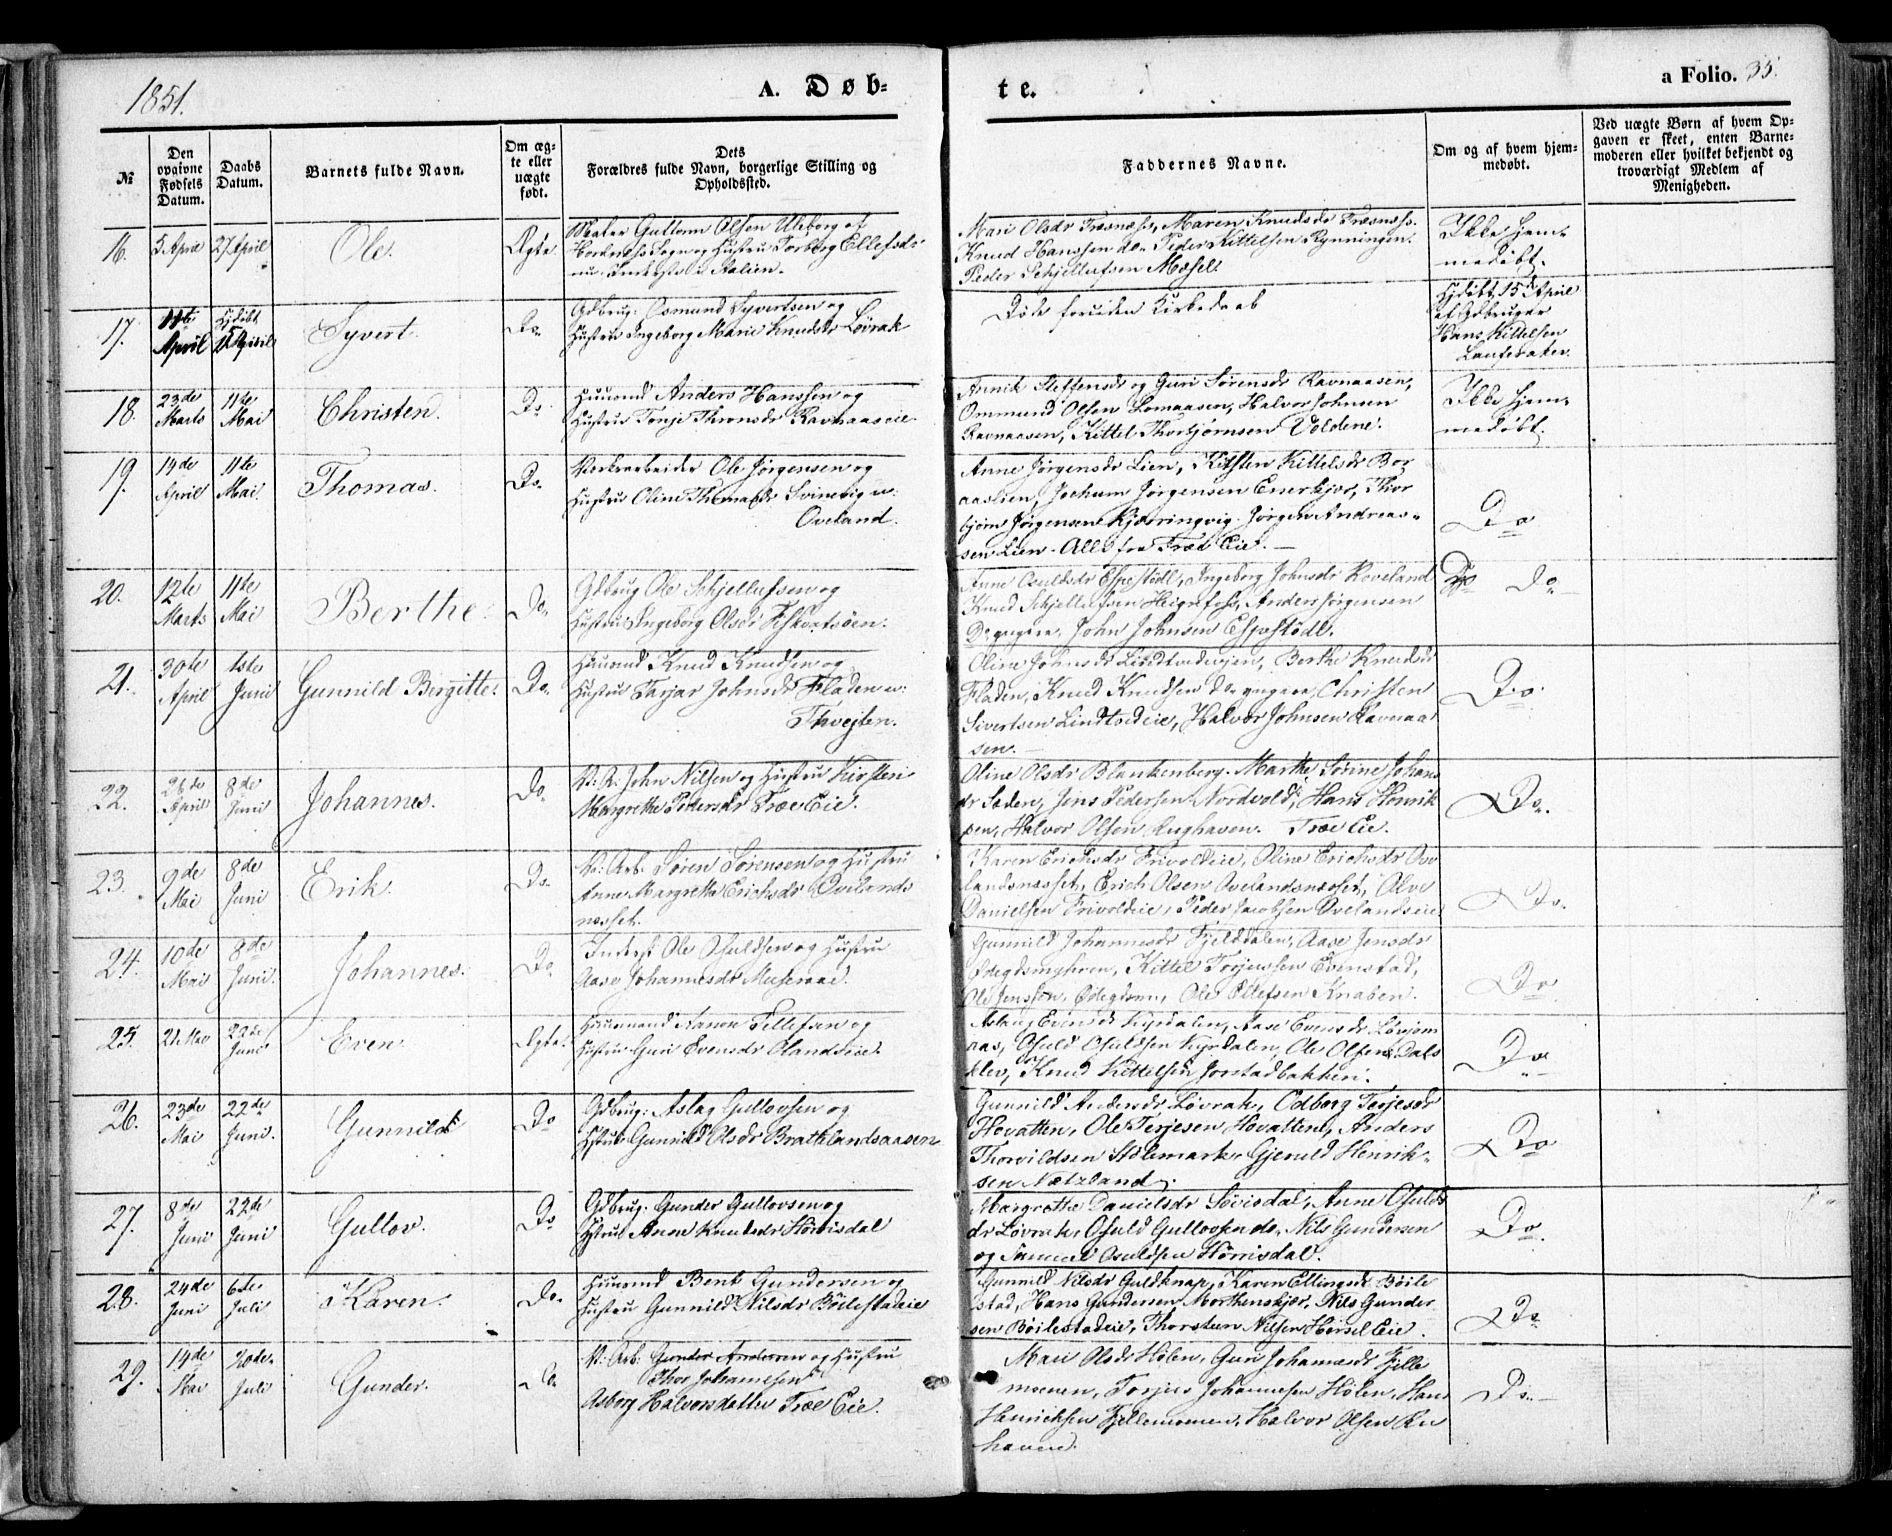 1851.
A. Døb-
te.
a Folio. 35.
№
Den opgivne Fødsels Datum.
Daabs Datum.
Barnets fulde Navn.
Om ægte eller uægte født.
Dets Forældres fulde Navn, borgerlige Stilling og Opholdssted.
Faddernes Navne.
Om og af hvem hjemmedøbt.
Ved uægte Børn af hvem Opgaven er skeet, enten Barnemoderen eller hvilket bekjendt og troværdigt Medlem af Menigheden.
16. 5 April 27 April Ole. Ægte
Guttorm Olsen
Sogn og Hustru Torborg Ellefsdr
i Aalien.
Mari Olsdr Træsnæss, Maren Knudsdr Træsnæss.
Knud Hanssen do. Peder Kittelsen Rynningen.
Peder Schjellufsen Mæsel.
Ikke hjem-
medøbt.
17. 11te April Hjdøbt 15 April Syvert. Do.
Gdbrug: Osmund Syvertsen og
Hustru Ingeborg Marie Knudsdr Løvrak
Døde foruden Kirkedaab
Hjdøbt 15de April
af Gdbruger
Hans Kittelsen
18. 23de Marts 11te Mai Christen. Do.
Huusmd Anders Hanssen og
Hustru Tonje Thronsdr Ravnaaseie
Annik Steffensdr og Guri Sørensdr Ravnaasen,
Ommund Olsen Lomaasen, Halvor Johnsen
Ravnaasen, Kittel Thorbjørnsen Voldene.
Ikke hjem-
medøbt.
19. 14de April 11te Mai. Thomas. Do.
Værksarbeider Ole Jørgensen og
Hustru Oline Thomasdr Svinevig u:
Oveland.
Anne Jørgensdr Lien, Kirsten Kittelsdr Bor
aaslien, Jochum Jørgensen Enerkjær, Thor
bjørn Jørgensen Kjærringvig. Jørgen Andreas-
sen Lien. Alle fra Træ Eie.
Do
20. 12te Marts 11te Mai Berthe. Do.
Gdbrug Ole Schjellufsen og
Hustru Ingeborg Olsdr Fiskvatsøen.
Anne Osuldsdr Espestødl, Ingeborg Johnsdr Roveland
Knud Schjellufsen Heigrefoss, Anders Jørgensen
Do yngere, John Johnsen Espestødl.
Do
21. 30te April 1ste Juni Gunnild Bergitte. Do.
Huusmd Knud Knudsen og
Hustru Tarjer Johnsdr Fladen u:
Thvejten.
Oline Johnsdr Berthe Knudsdr
Fladen, Knud Knudsen do yngere, Christen
Sivertsen Lindtveiteie, Halvor Johnsen Ravnaa
sen.
Do.
22. 26de April 8de Juni Johannes. Do.
V: A: John Nilsen og Hustru Kirsten
Margrethe Pedersdr Træ Eie.
Oline Olsdr Blankenberg. Marthe Sørine Johans
dr Soden, Jens Pedersen Nordvold, Hans Henrik
sen, Halvor Olsen Rughaven. Træ Eie.
Do.
23. 9de Mai 8de Juni Erik. Do.
V: Arb. Søren Sørensen og Hustru
Anne Margrethe Erichsdr Ovelands
næsset.
Karen Erichsdr Frivoldeie, Oline Erichsdr Ove
landsnæsset, Erich Olsen Ovelandsnæsset, Olve
Danielsen Frivoldeie, Peder Jacobsen Ovelandseie
Do.
24. 10de Mai 8de Juni. Johannes. Do
Inderst Ole Osuldsen og Hustru
Aase Johannesdr
Gunnild Johannesdr Fjelddalen, Aase Jensdr
Kittel Torjussen Evenstad,
Ole Jenssen, Ole Ellefsen Knaben.
Do
25. 21 Mai 22de Juni Even. Ægte.
Huusmand Aanon Tellefsen og
Hustru Guri Evensdr Olandseie.
Aslaug Evensdr Kyrdalen, Aase Evensdr
aas, Osuld Osuldsen Kyrdalen, Ole Olsen Dals
klev, Knud Kittelsen Jorstadbakken.
Do
26. 23de Mai 22de Juni. Gunnild Do
Gdbrug: Aslag Gullovsen og
Hstru Gunnild Olsdr Brattelandsaasen
Gunnild Andersdr Løvrak, Odborg Terjesdr
Hovatten, Ole Terjesen Hovatten, Anders
Thorvildsen Stølemark, Gjeruld Henrik-
sen Næteland.
Do
27. 8de Juni 22de Juni Gullov. Do
Gdbrug: Gunder Gullovsen og
Hstru Anne Knudsdr Hørrisdal
Margrethe Danielsdr Anne Osulds
dr Løvrak, Osuld Gullovsen do, Nils Gundersen
og Osuldsen Hørrisdal.
Do.
28. 24de Juni 6te Juli Karen. Do.
Huusmd Bent Gundersen og
Hustru Gunnild Nilsdr Böilestadeie
Gunnild Nilsdr Guldknap, Karen Ellingsdr Böile
stad, Hans Gundersen Morthenskjær, Nils Gunder
sen Böilestadeie, Thorsten Nilsen Herselleie.
Do
29. 14de Mai 20de Juli Gunder. Do.
V: Arb: Gunder Andersen og Hustru
Thor Johannesen
Asborg Halvorsdatter Træ Eie.
Mari Olsdr Hølen, Guri Johannesdr Fjelle
moenen, Torjus Johannesen Hølen, Hans
Henrichsen Fjellemoenen, Halvor Olsen Ru
haven.
Do.